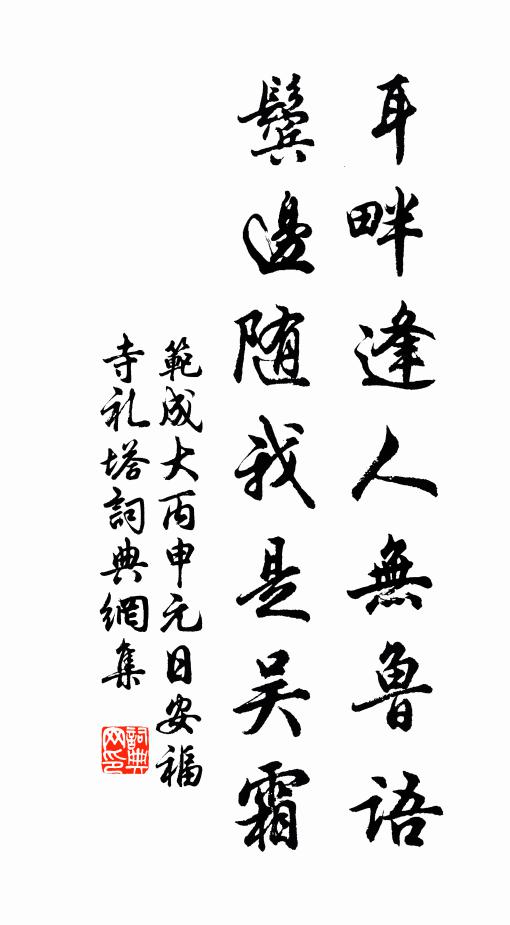 耳畔逢人無魯語
鬢邊随我是吴霜
範成大丙申元日安福
寺礼塔詞典網集
詞典
网印